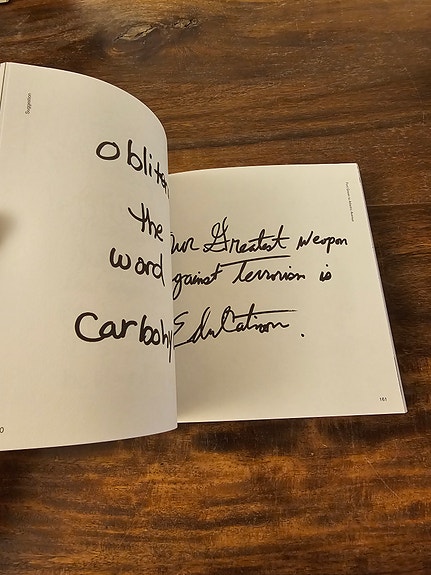 Suggestion
oblite
the
word
carbohy
0
our Greatest weapon
against terrorism is
Education.
161